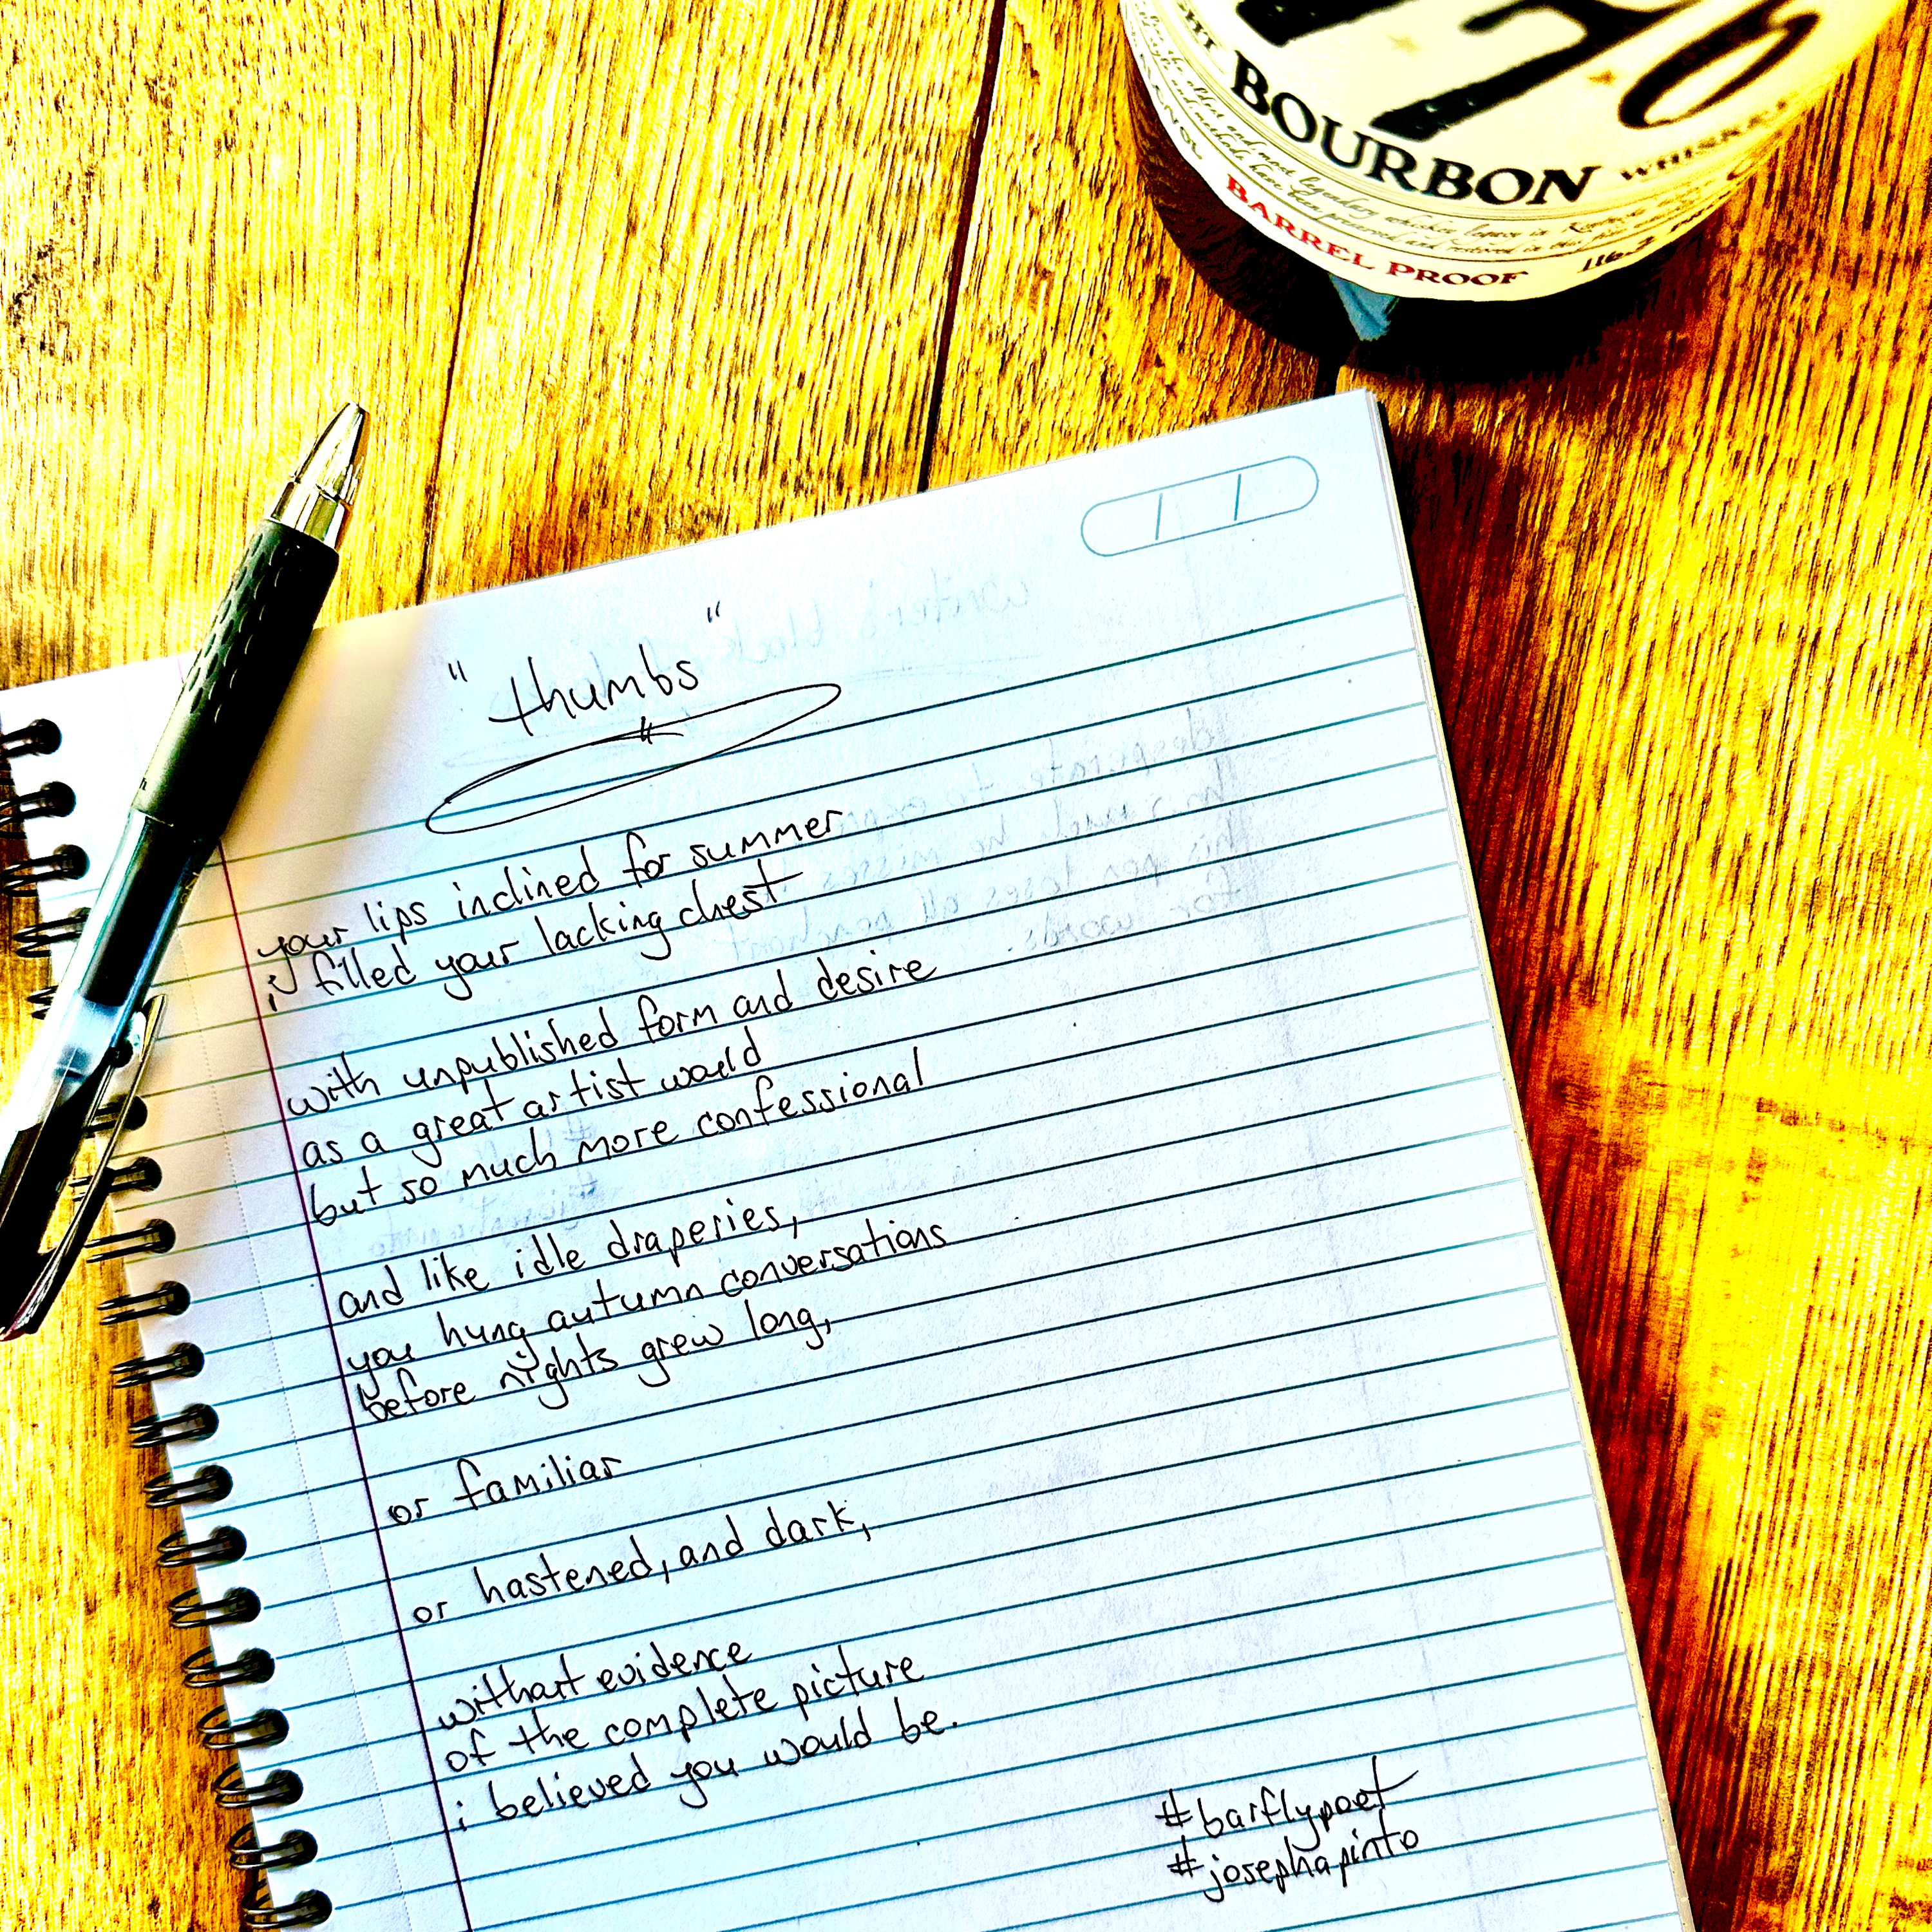 1770
BOURBON WHISKEY
BARREL PROOF 116.2
"thumbs"
your lips inclined for summer
i filled your lacking chest
with unpublished form and desire
as a great artist would
but so much more confessional
and like idle draperies,
you hung autumn conversations
before nights grew long,
or familiar
or hastened, and dark,
without evidence
of the complete picture
i believed you would be.
#barflypoet
#josephapinto